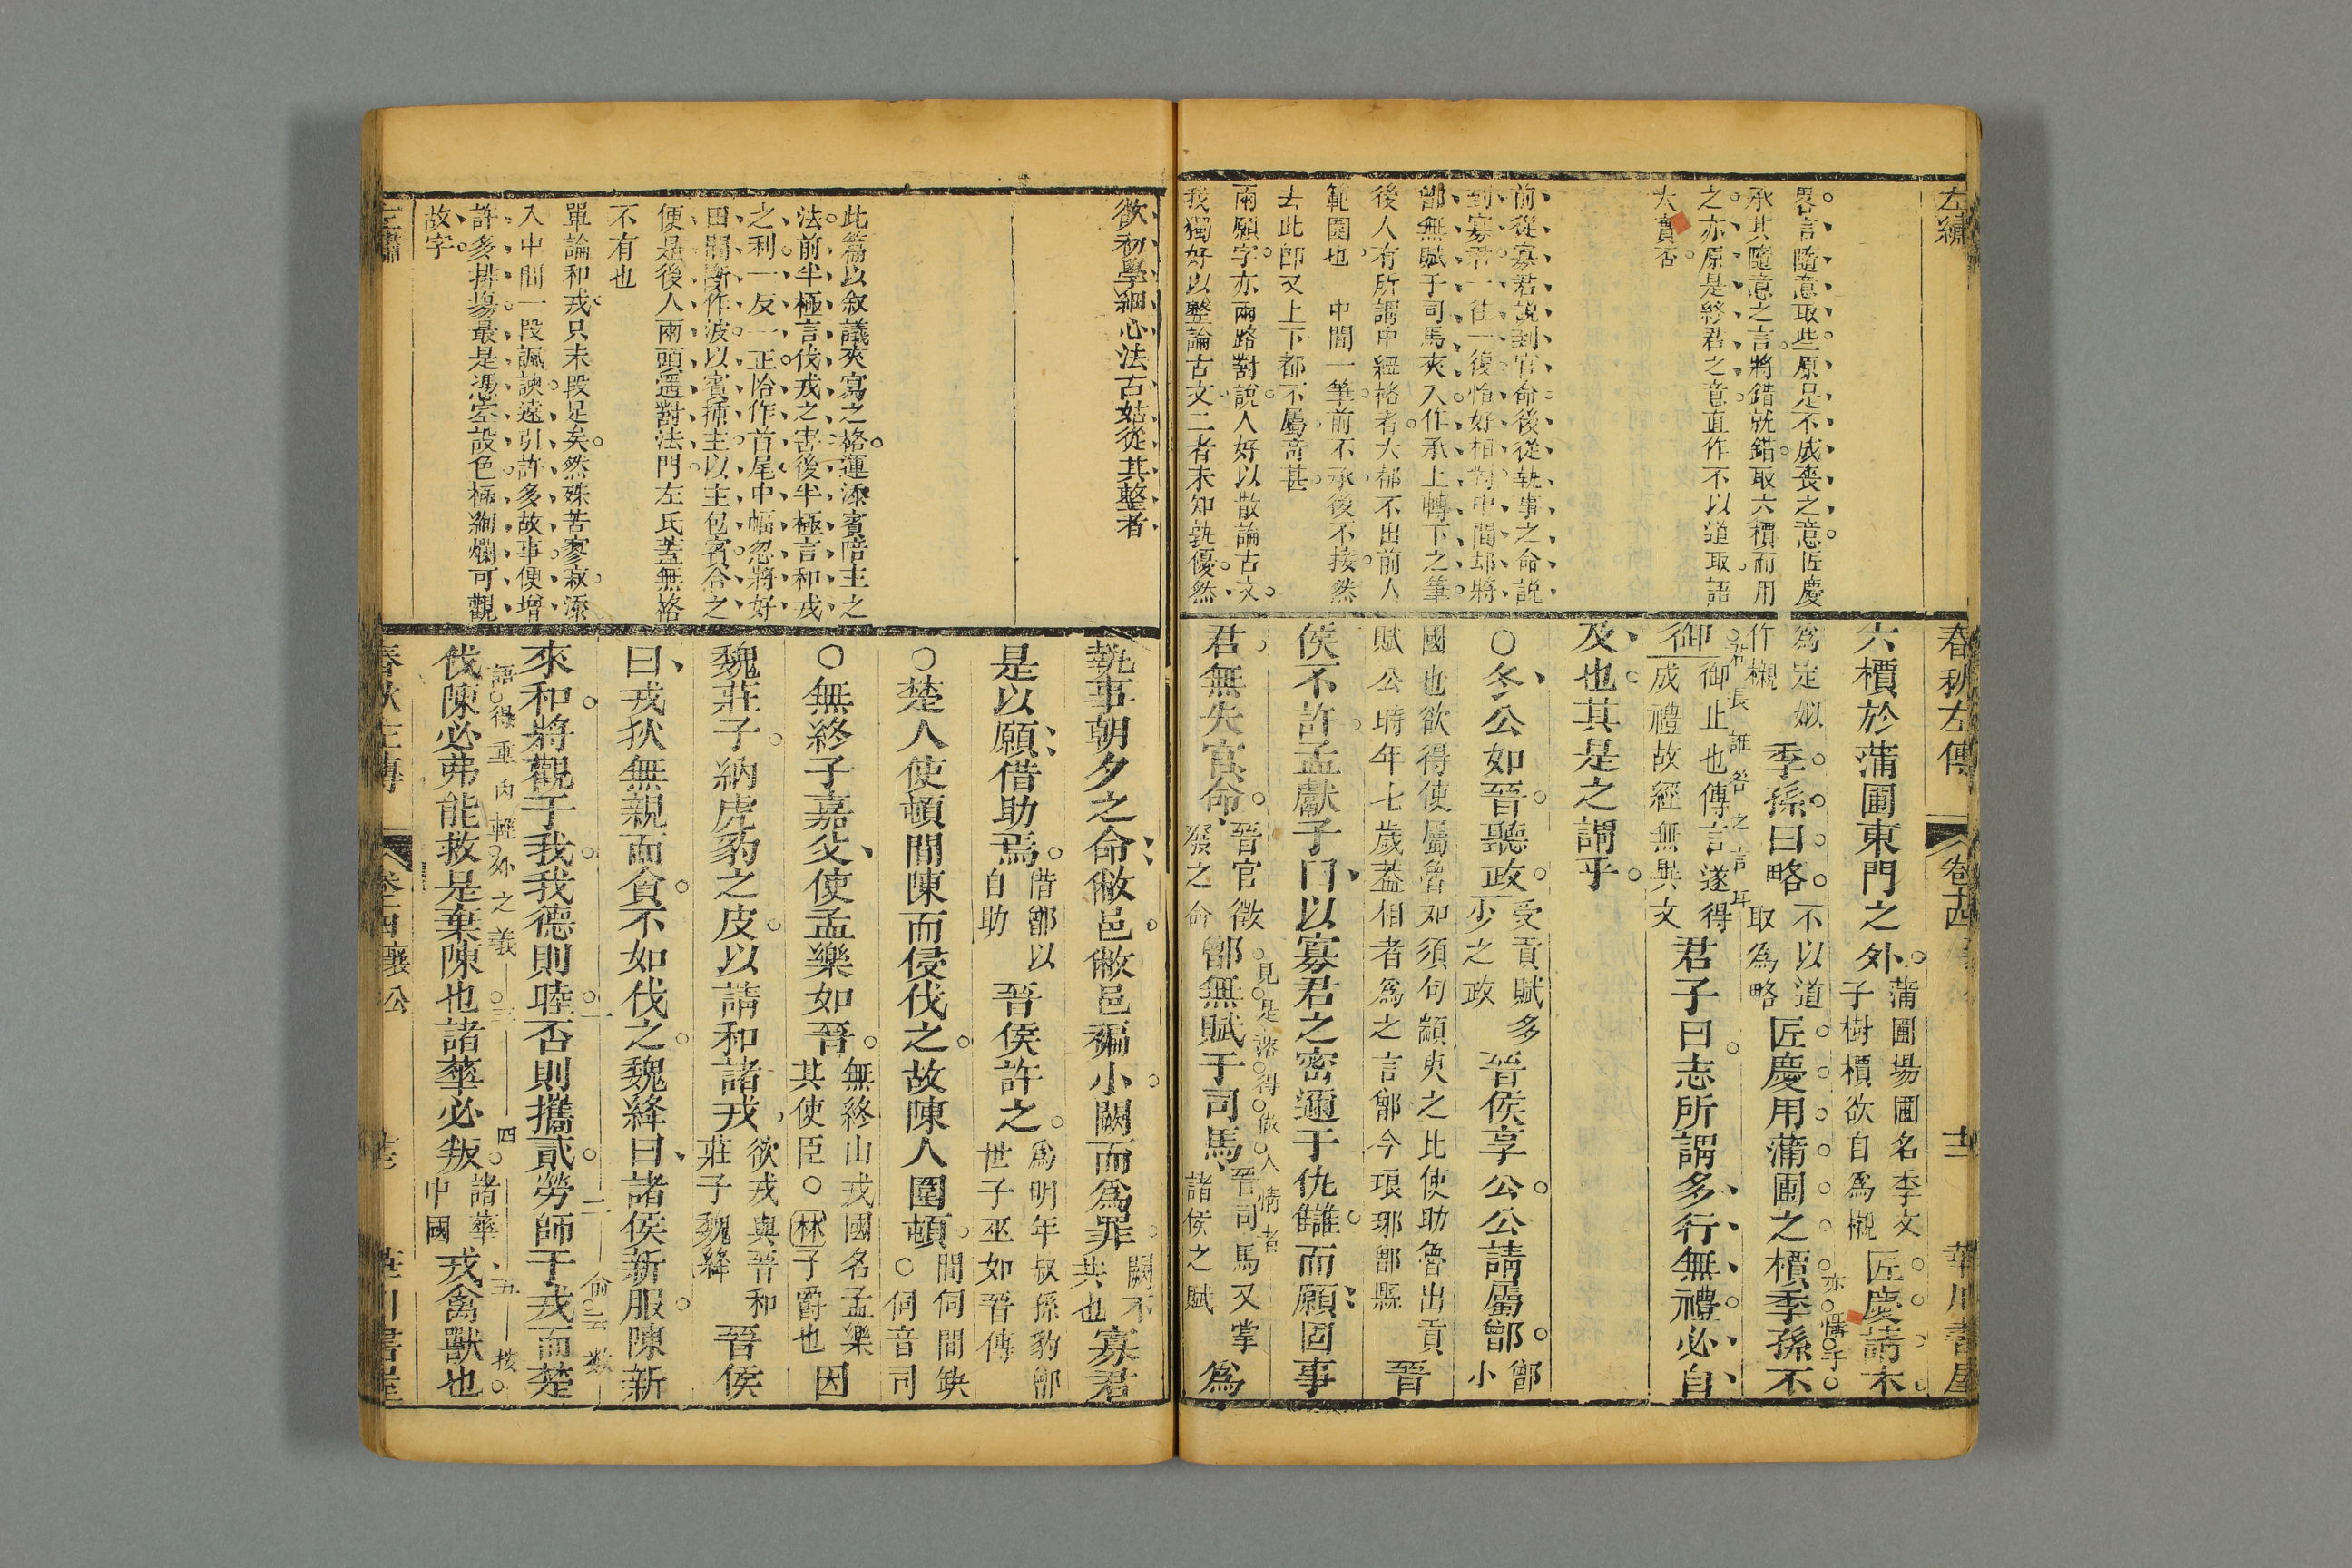 左繡
畧言隨意取些原足不成喪之意匠慶
承其隨意之言將錯就錯取六檟而用
之亦原是終君之意直作不以道取語
大賣否
前從寡君說到官命後從執事之命說
到寡君一往一復恰好相對中間却將
鄫無賦于司馬夾入作承上轉下之筆
後人有所謂中紐格者大都不出前人
範圍也 中間一筆前不承後不接然
去此卽又上下都不屬奇甚
兩願字亦兩路對說人好以散論古文
我獨好以整論古文二者未知孰優然
春秋左傳 卷十四 華川書屋
六檟於蒲圃東門之外蒲圃場圃名季文子樹檟欲自為櫬匠慶請木
亦憒子
為定姒作櫬季孫曰略不以道取為略匠慶用蒲圃之檟季孫不
君長誰咎之言耳
御御止也傳言遂得成禮故經無異文君子曰志所謂多行無禮必自
及也其是之謂乎
○冬公如晉聽政受貢賦多少之政晉侯享公公請屬鄫鄫小
國也欲得使屬魯如須句顓臾之比使助魯出貢賦公時年七歲蓋相者為之言鄫今琅邪鄫縣晉
侯不許孟獻子曰以寡君之密邇于仇讎而願固事
見是落得做人情者
君無失官命晉官徵發之命鄫無賦于司馬晉司馬又掌諸侯之賦為
欲初學細心法古姑從其整者
此篇以叙議夾寫之格運添賓陪主之
法前半極言伐戎之害後半極言和戎
之利一反一正恰作首尾中幅忽將好
田閒斷作波以賓插主以主包賓合之
便是後人兩頭遥對法門左氏蓋無格
不有也
單論和戎只末段足矣然殊苦寥寂添
入中間一段諷諫遠引許多故事便增
許多排塲最是憑空設色極絢爛可觀
故字
執事朝夕之命敝邑敝邑褊小闕而為罪闕不共也寡君
是以願借助焉借鄫以自助晉侯許之為明年叔孫豹鄫世子巫如晉傳
○楚人使頓間陳而侵伐之故陳人圍頓間伺間缺○伺音司
○無終子嘉父使孟樂如晉無終山戎國名孟樂其使臣○林子爵也因
魏莊子納虎豹之皮以請和諸戎欲戎與晉和莊子魏絳晉侯
曰戎狄無親而貪不如伐之魏絳曰諸侯新服陳新
一 二
來和將觀于我我德則睦否則攜貳勞師于戎而楚
語得重內輕外之義 三 四 五
伐陳必弗能救是棄陳也諸華必叛諸華中國戎禽獸也
左繡 春秋左傳 卷十四 襄公 華川書屋